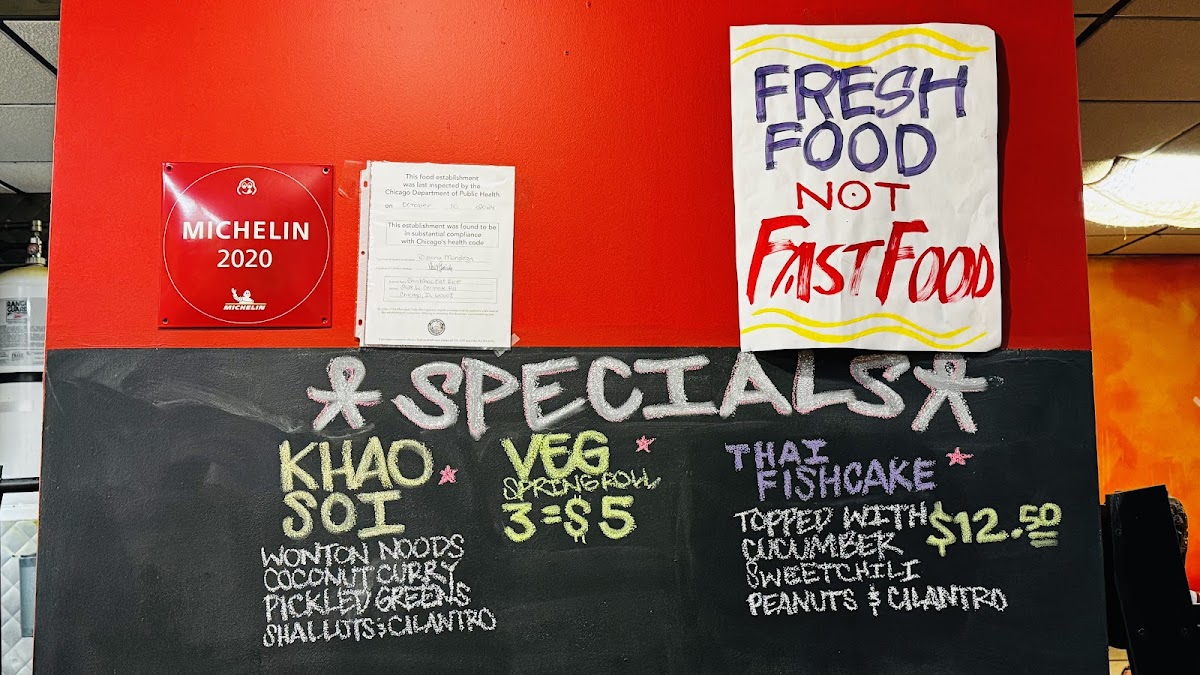 MICHELIN
2020
MICHELIN
This food establishment
was last inspected by the
Chicago Department of Public Health
on October 10 2024
This establishment was found to be
in substantial compliance
with Chicago's health code
FRESH
FOOD
NOT
FAST FOOD
*SPECIALS*
KHAO
SOI
WONTON NOODS
COCONUT CURRY
PICKLED GREENS
SHALLOTS & CILANTRO
VEG
SPRING ROLL
3=$5
THAI
FISHCAKE
$12.50
TOPPED WITH
CUCUMBER
SWEETCHILI
PEANUTS & CILANTRO